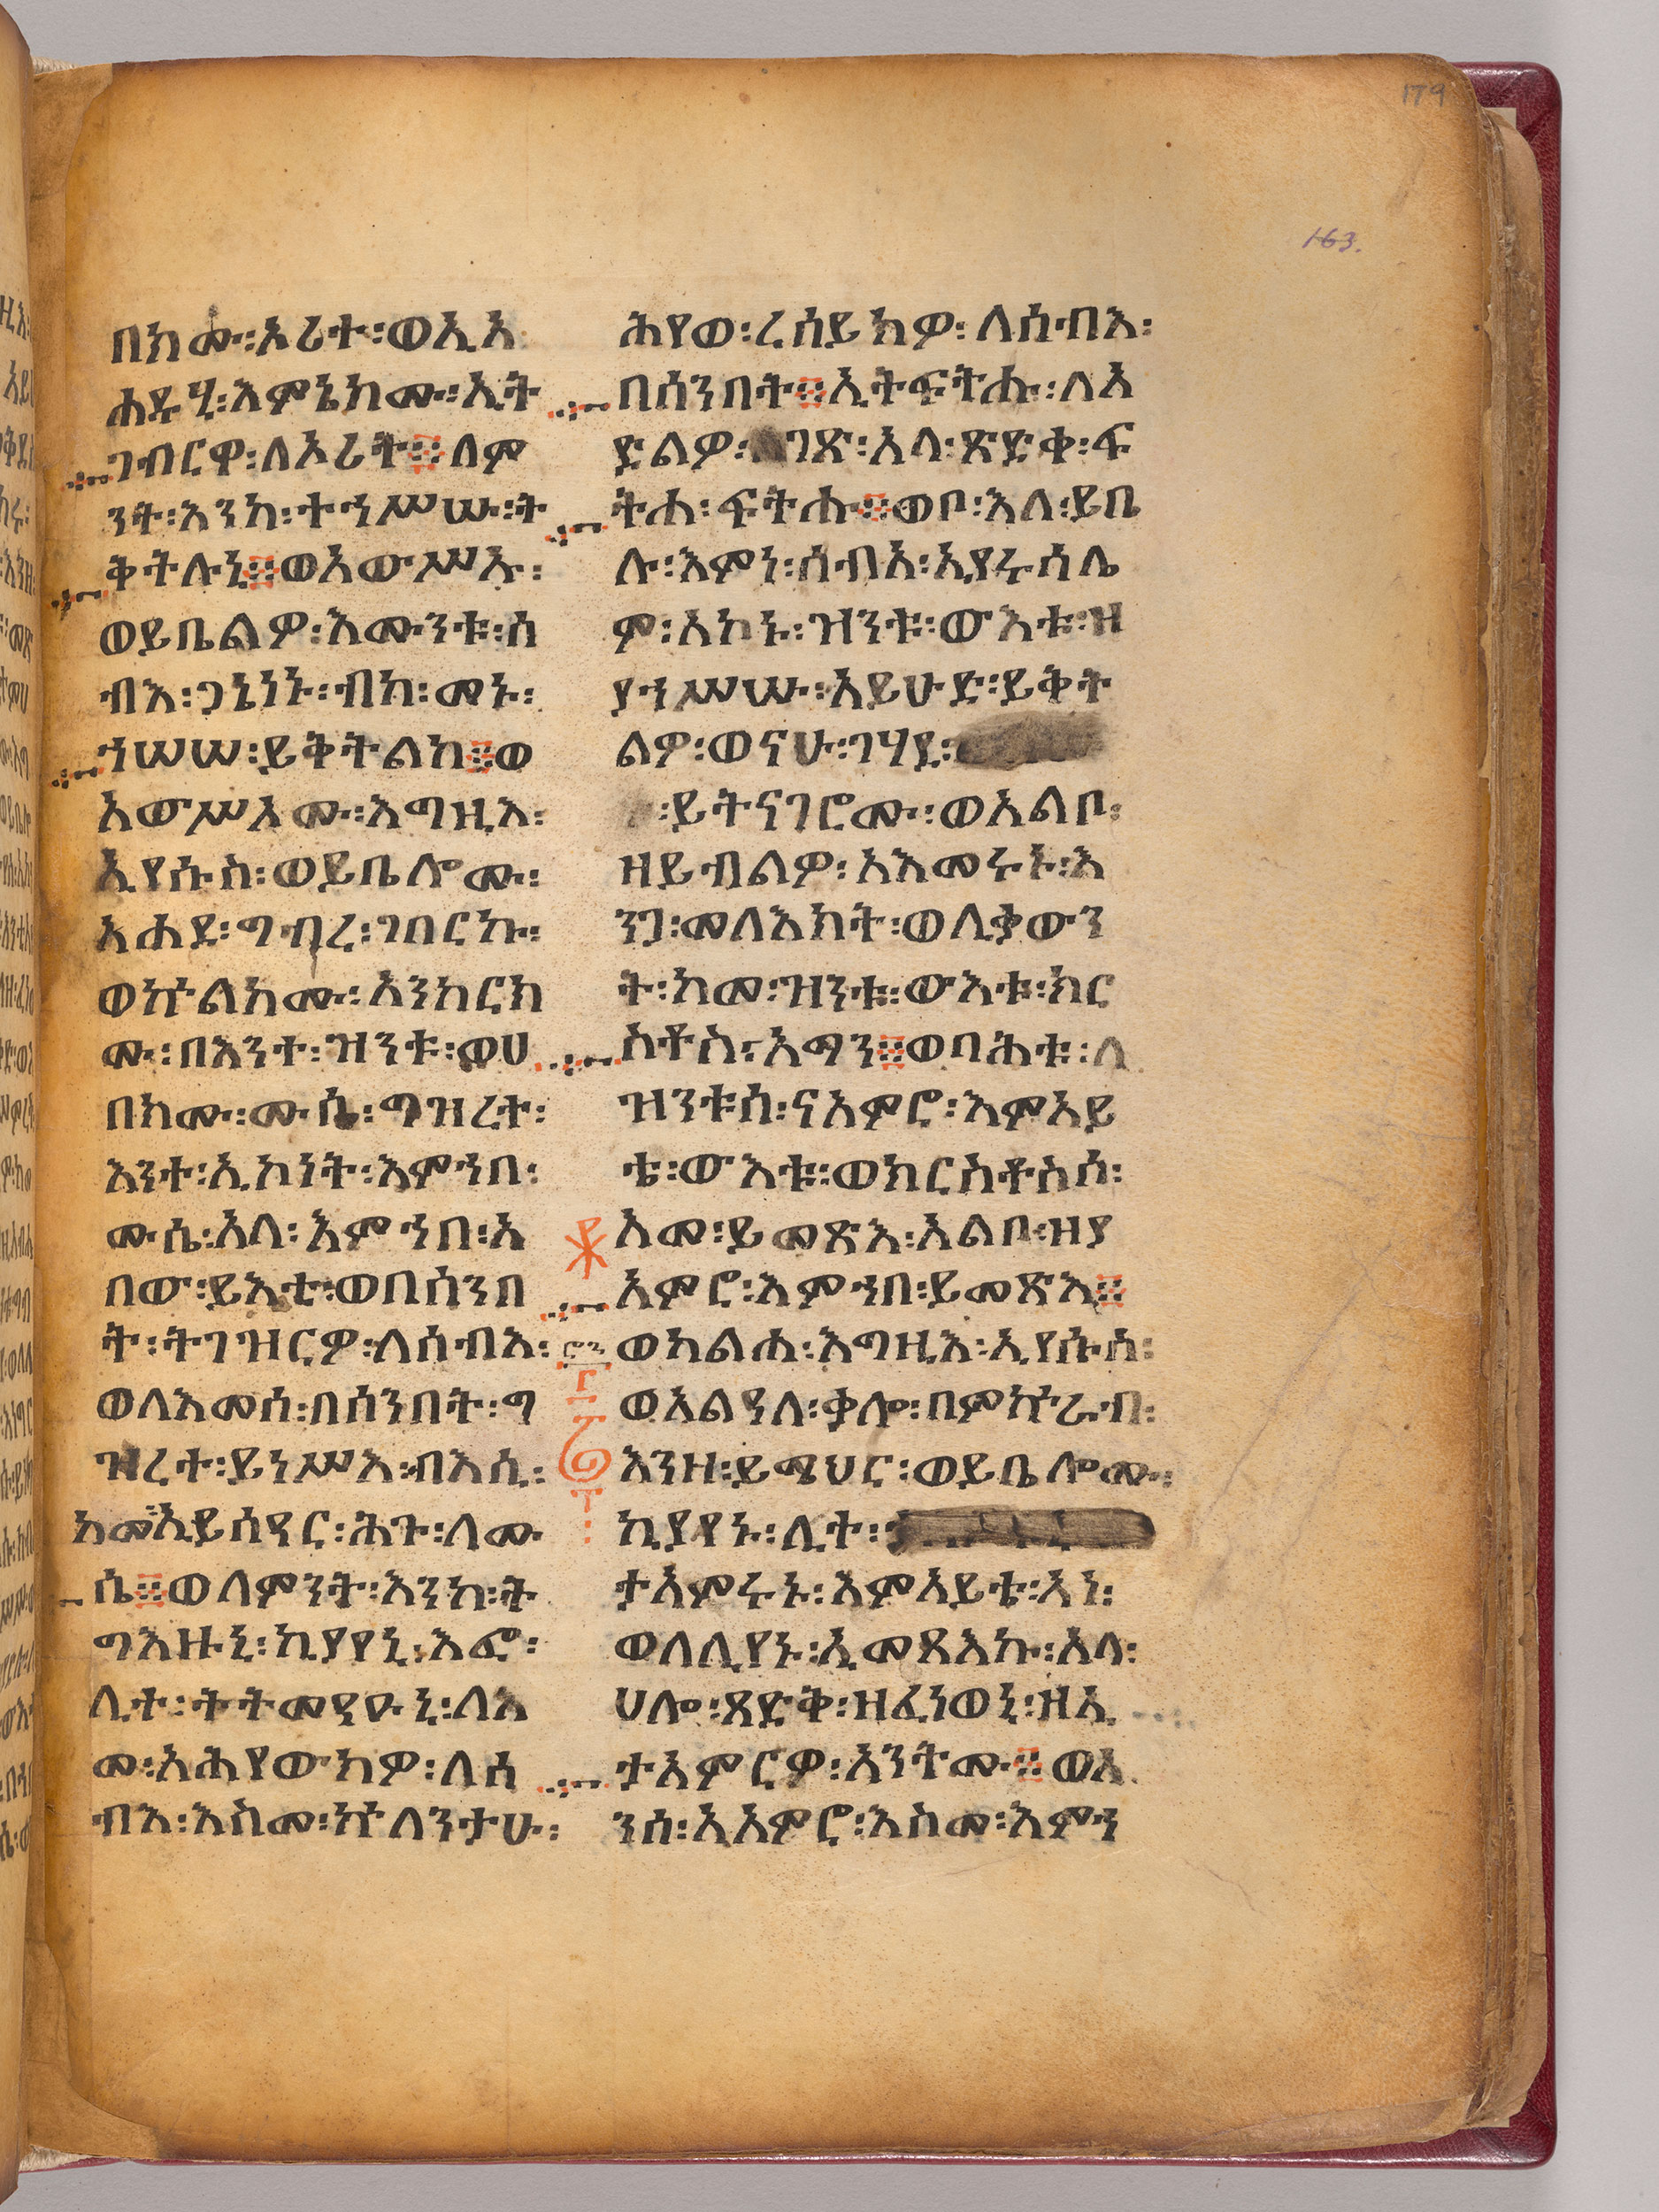 179
163.
በክሙ፡ኦሪተ፡ወኢአ
ሐዱሂ፡እምኔክሙ፡ኢት
ገብርዋ፡ለኦሪት፨ለም
ንት፡እንከ፡ተኀሥሡ፡ት
ቅትሉኒ፨ወአውሥኡ፡
ወይቤልዎ፡እሙንቱ፡ሰ
ብእ፡ጋኔነኑ፡ብከ፡መኑ፡
ኀሠሠ፡ይቅትልከ፨ወ
አውሥአሙ፡እግዚእ፡
ኢየሱስ፡ወይቤሎሙ፡
አሐደ፡ግብረ፡ገበርኩ፡
ወኵልክሙ፡አንከርክ
ሙ፡በእንተ፡ዝንቱ፡ወሀ
በክሙ፡ሙሴ፡ግዝረተ፡
እንተ፡ኢኮነት፡እምኀበ፡
ሙሴ፡አላ፡እምኀበ፡አ
በው፡ይእቲ፡ወበሰንበ
ት፡ትገዝርዎ፡ለሰብእ፡
ወለእመሰ፡በሰንበት፡ግ
ዝረተ፡ይነሥእ፡ብእሲ፡
ከመ፡ኢይሰዓር፡ሕጉ፡ለሙ
ሴ፨ወለምንት፡እንከ፡ት
ግእዙኒ፡ኪያየኒ፡እፎ፡
ሊተ፡ትትመዓዑኒ፡ለእ
መ፡አሕየውክዎ፡ለሰ
ብእ፡እስመ፡ኵለንታሁ፡
ሕየወ፡ረሰይክዎ፡ለሰብእ፡
በሰንበት፨ኢትፍትሑ፡ለአ
ድልዎ፡ገጽ፡አላ፡ጽድቀ፡ፍ
ትሐ፡ፍትሑ፨ወቦ፡እለ፡ይቤ
ሉ፡እምነ፡ሰብአ፡ኢየሩሳሌ
ም፡አኮኑ፡ዝንቱ፡ውእቱ፡ዝ
ያኀሥሡ፡አይሁድ፡ይቅት
ልዎ፡ወናሁ፡ገሃደ፡
ይትናገሮሙ፡ወአልቦ፡
ዘይብልዎ፡አእመሩኑ፡እ
ንጋ፡መለእክት፡ወሊቃውን
ት፡ከመ፡ዝንቱ፡ውእቱ፡ክር
ስቶስ፡አማን፨ወባሕቱ፡ለ
ዝንቱሰ፡ናአምሮ፡እምአይ
ቴ፡ውእቱ፡ወክርስቶስሰ፡
አመ፡ይመጽእ፡አልቦ፡ዘያ
አምሮ፡እምኀበ፡ይመጽእ፨
ወከልሐ፡እግዚእ፡ኢየሱስ፡
ወአልዓለ፡ቃሎ፡በምኵራብ፡
እንዘ፡ይሜህር፡ወይቤሎሙ፡
ኪያየኑ፡ሊተ፡
ታአምሩኑ፡እምአይቴ፡አነ፡
ወለሊየኑ፡ኢመጻእኩ፡አላ፡
ሀሎ፡ጻድቅ፡ዝፈነወኒ፡ዘኢ
ታአምርዎ፡አንትሙ፨ወአ
ንሰ፡አአምሮ፡እስመ፡እምኀ